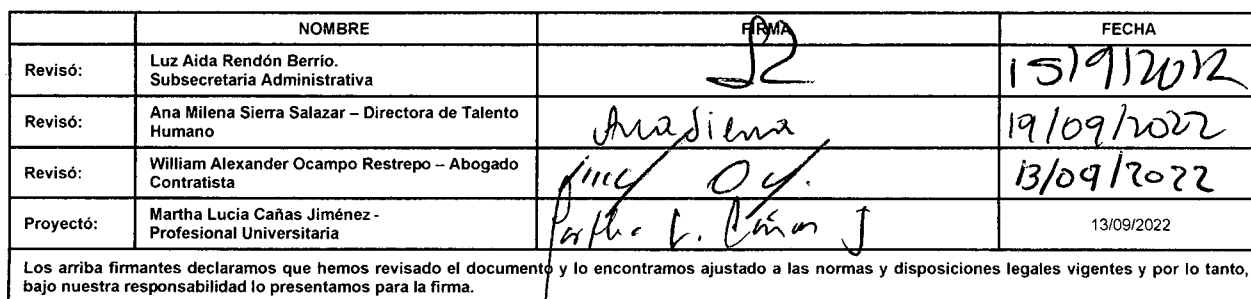 NOMBRE FIRMA FECHA
Revisó: Luz Aida Rendón Berrio.
Subsecretaria Administrativa 15/9/2022
Revisó: Ana Milena Sierra Salazar – Directora de Talento
Humano AnaSierra 19/09/2022
Revisó: William Alexander Ocampo Restrepo – Abogado
Contratista 13/09/2022
Proyectó: Martha Lucia Cañas Jiménez -
Profesional Universitaria Martha L. Cañas J 13/09/2022
Los arriba firmantes declaramos que hemos revisado el documento y lo encontramos ajustado a las normas y disposiciones legales vigentes y por lo tanto,
bajo nuestra responsabilidad lo presentamos para la firma.